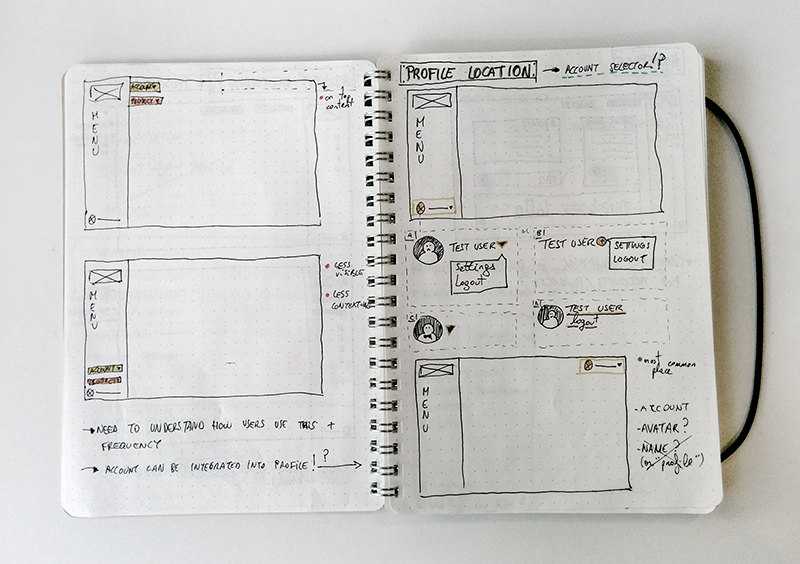 ACCOUNT
PROJECT
MENU
• on top
content
MENU
ACCOUNT
PROJECT
• LESS
VISIBLE
• LESS
→ NEED TO UNDERSTAND HOW USERS USE THIS +
FREQUENCY
→ ACCOUNT CAN BE INTEGRATED INTO PROFILE!? →
PROFILE LOCATION. → ACCOUNT SELECTOR!?
MENU
A
TEST USER
Settings
Logout
B
TEST USER
SETTINGS
LOGOUT
C
TEST USER
logout
MENU
• most common
place
- ACCOUNT
- AVATAR?
- NAME?
(or "profile")